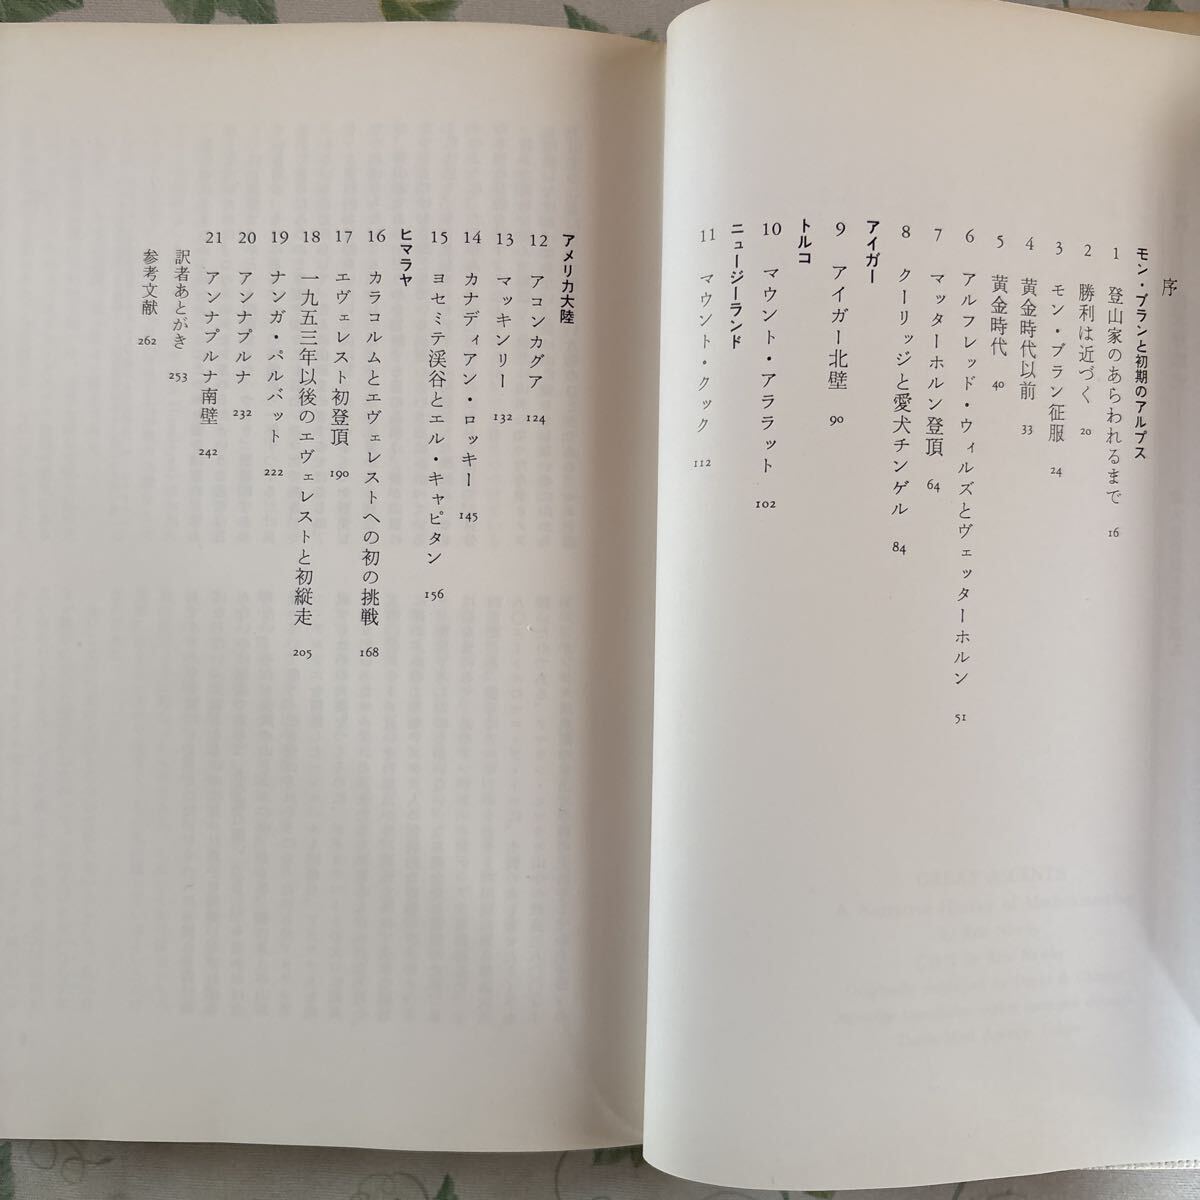 序
モン・ブランと初期のアルプス
1 登山家のあらわれるまで 16
2 勝利は近づく 20
3 モン・ブラン征服 24
4 黄金時代以前 33
5 黄金時代 40
6 アルフレッド・ウィルズとヴェッターホルン 51
7 マッターホルン登頂 64
8 クーリッジと愛犬チンゲル 84
アイガー
9 アイガー北壁 90
トルコ
10 マウント・アララット 102
ニュージーランド
11 マウント・クック 112
アメリカ大陸
12 アコンカグア 124
13 マッキンリー 132
14 カナディアン・ロッキー 145
15 ヨセミテ渓谷とエル・キャピタン 156
ヒマラヤ
16 カラコルムとエヴェレストへの初の挑戦 168
17 エヴェレスト初登頂 190
18 一九五三年以後のエヴェレストと初縦走 205
19 ナンガ・パルバット 222
20 アンナプルナ 232
21 アンナプルナ南壁 242
訳者あとがき 253
参考文献 262
GREAT ASCENTS
A Narrative History of Mountaineering